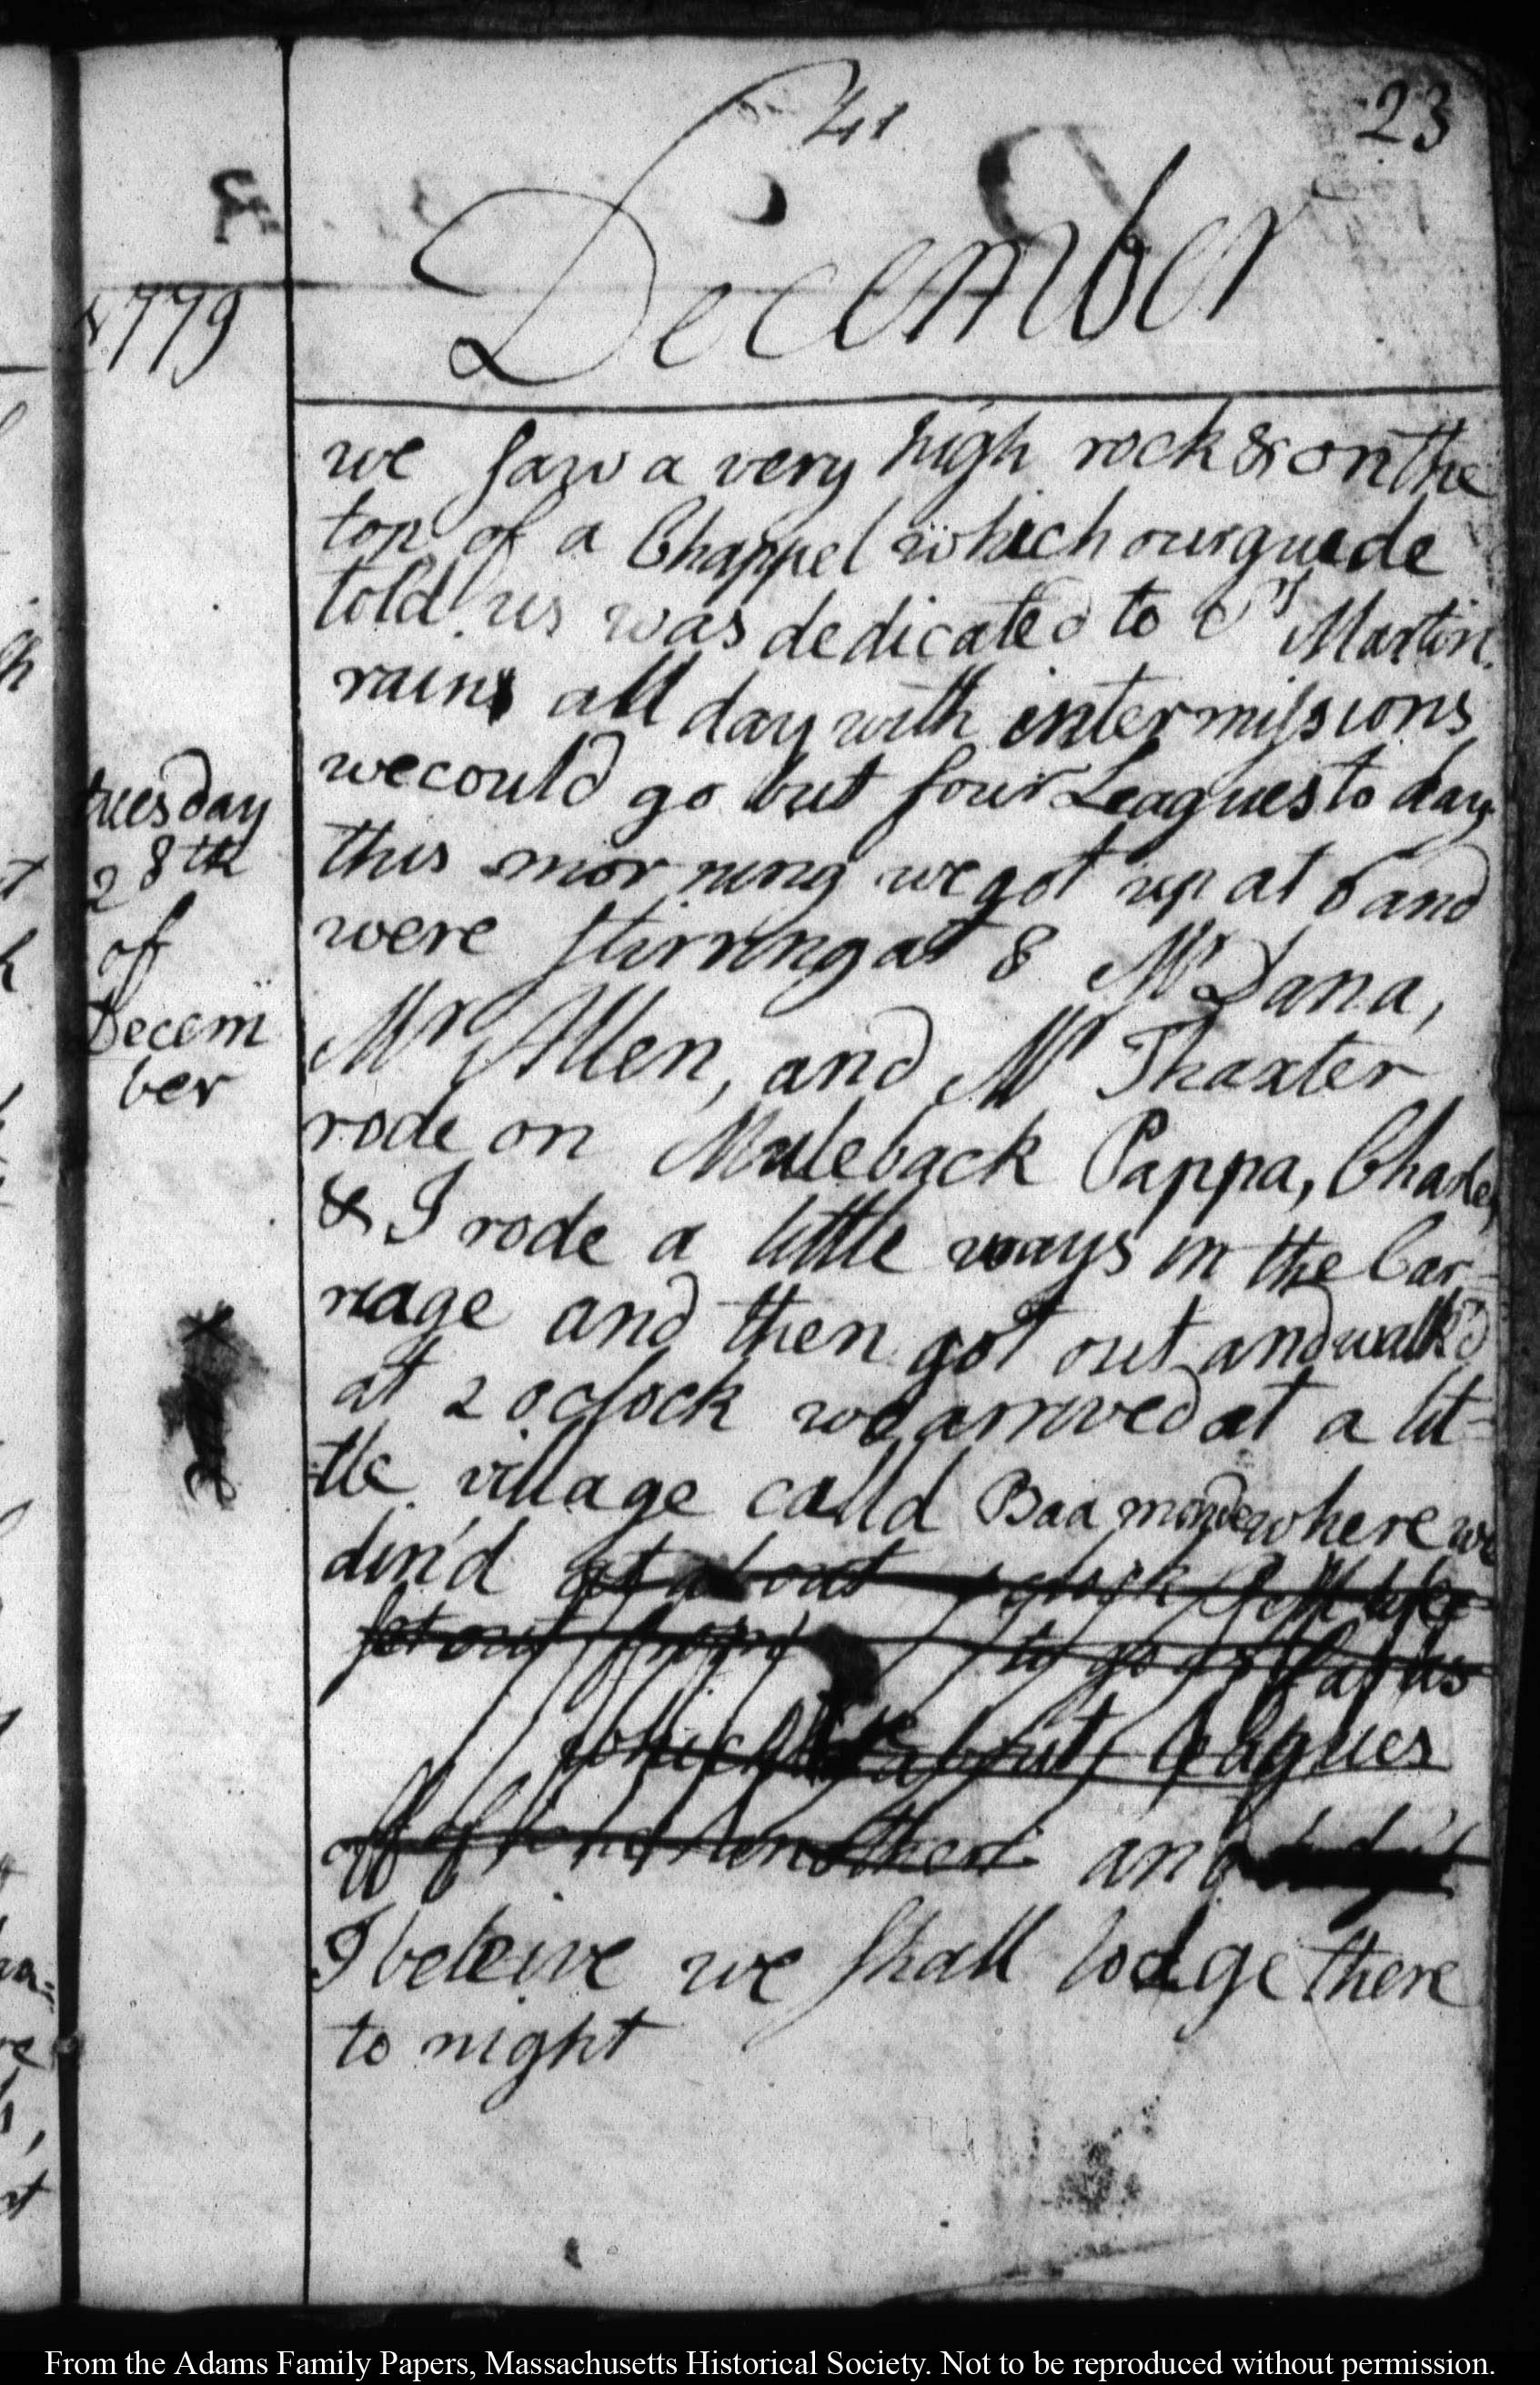 41
23
1779
December
we saw a very high rock & on the
top of a Chappel which our guide
told us was dedicated to St Martin.
rains all day with intermissions
we could go but four Leagues to day
tuesday
28th
of
Decem
ber
this morning we got up at 6 and
were stirring at 8 Mr Dana,
Mr Allen, and Mr Thaxter
rode on Muleback Pappa, Charles,
& I rode a little ways in the Car=
riage and then got out and walk'd
at 2 oclock we arrived at a lit=
=tle village calld Baamonde where we
din'd at about clock P M we
set out from to go as far as
which is about leagues
off and
I beleive we shall lodge there
to night
From the Adams Family Papers, Massachusetts Historical Society. Not to be reproduced without permission.